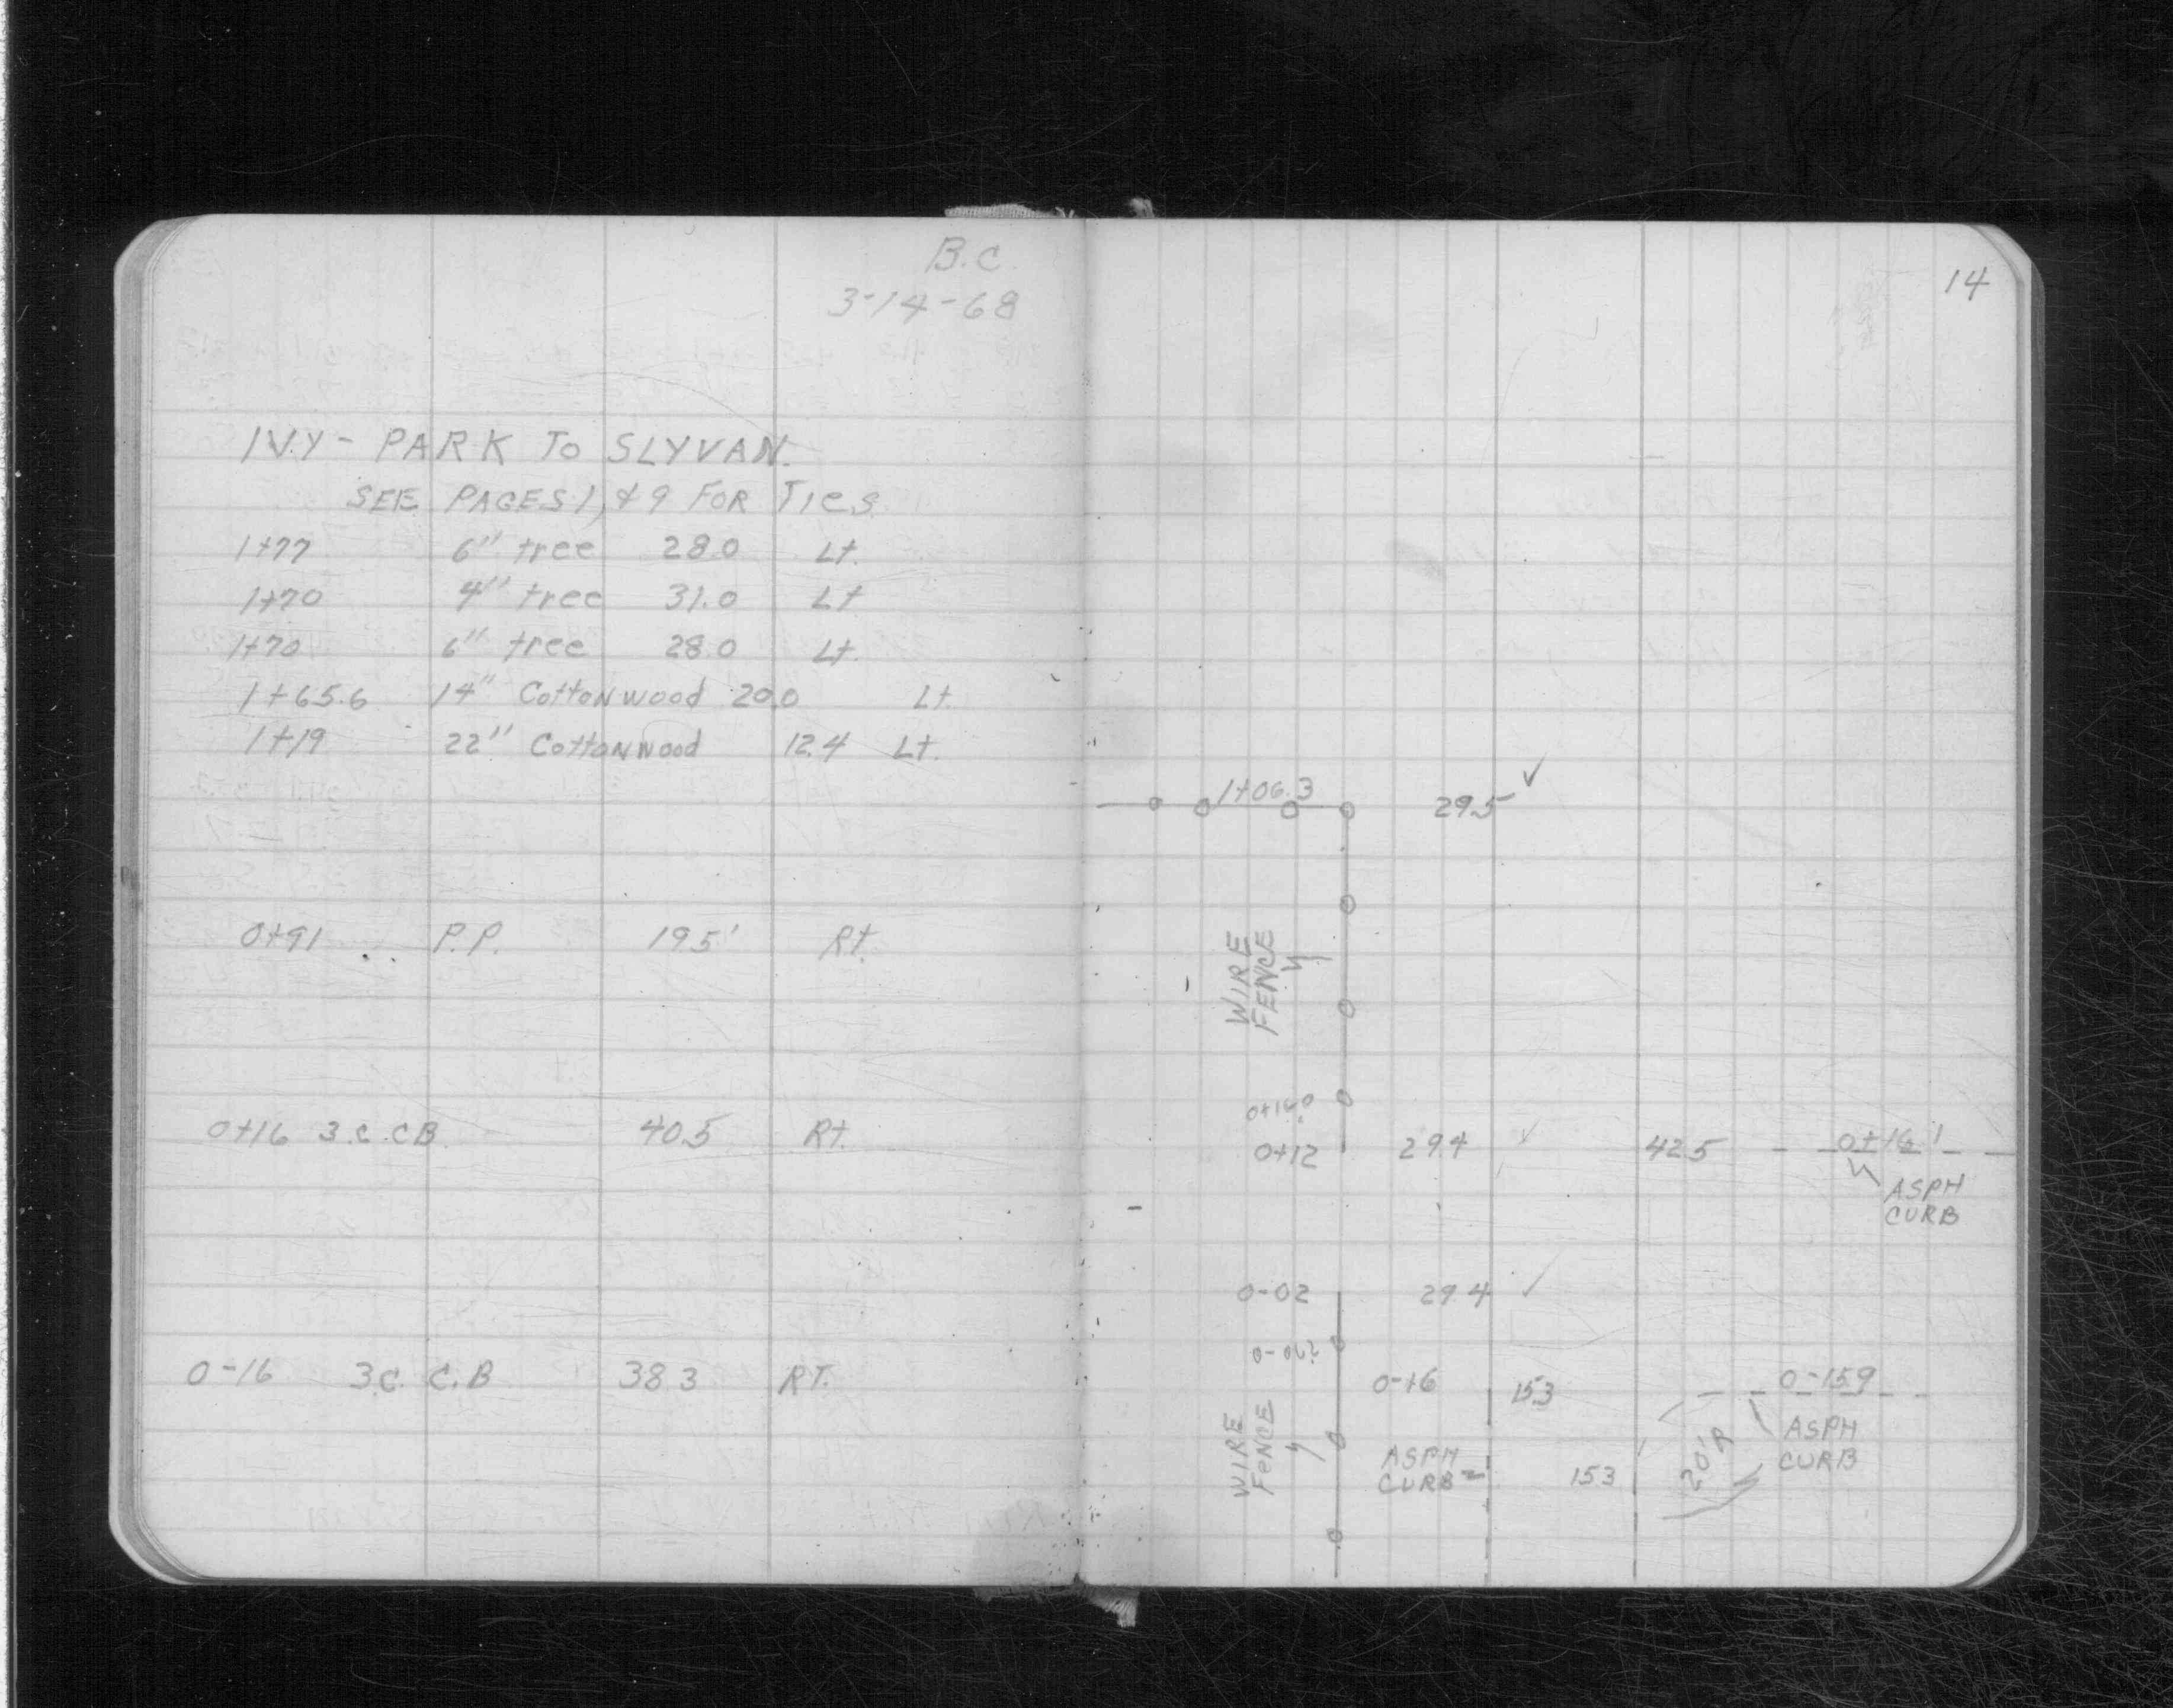 B.C.
3-14-68
IVY - PARK TO SLYVAN.
SEE PAGES 1, & 9 FOR TIES
1+77 6" tree 28.0 Lt.
1+70 4" tree 31.0 Lt
1+70 6" tree 28.0 Lt.
1+65.6 14" Cottonwood 20.0 Lt.
1+19 22" Cottonwood 12.4 Lt.
0+91 P.P. 19.5' Rt.
0+16 3.C. CB 40.5 Rt.
0-16 3.C. C.B 38.3 RT.
14
1+06.3 29.5 ✓
WIRE
FENCE
0+12 29.4 ✓ 42.5 0+16
ASPH
CURB
0-02 29.4 ✓
0-16 15.3 0-15.9
WIRE
FENCE
ASPH
CURB
15.3
20'R
ASPH
CURB